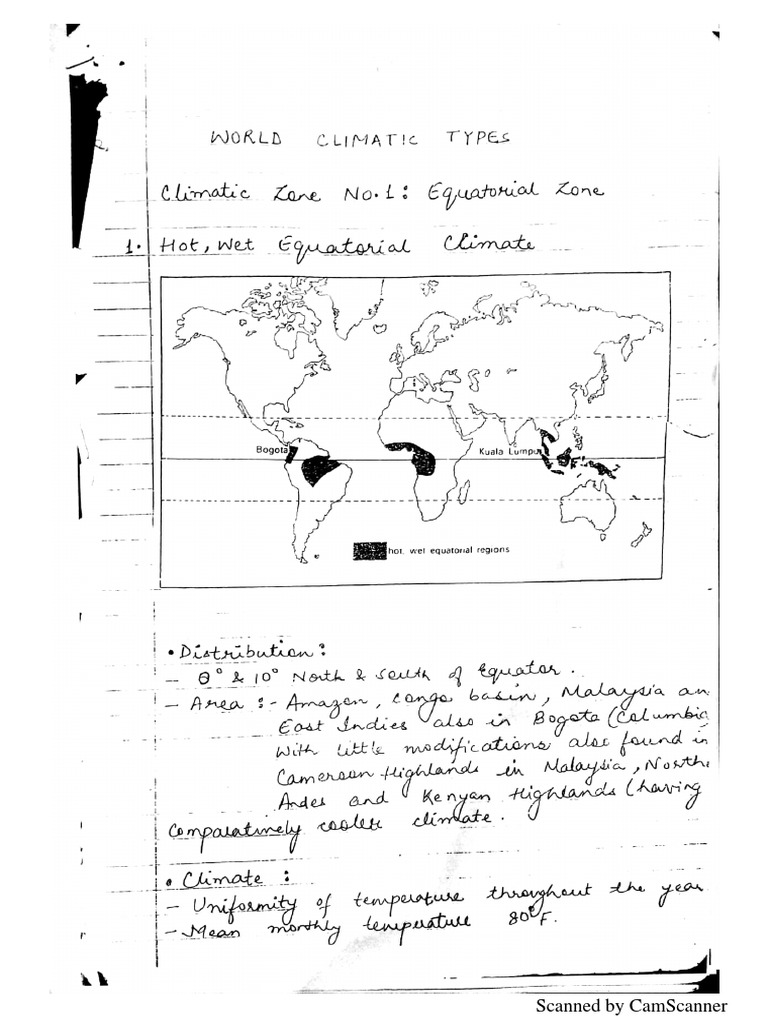 WORLD CLIMATIC TYPES
Climatic Zone No.1: Equatorial Zone
1. Hot, Wet Equatorial Climate
Bogota
Kuala Lumpur
hot, wet equatorial regions
• Distribution :
- 0° & 10° North & South of Equator.
- Area :- Amazon, Congo basin, Malaysia an
East Indies also in Bogota (Columbia
With little modifications also found in
Cameroon Highlands in Malaysia, North
Andes and Kenyan Highlands (having
comparatively cooler climate.
• Climate :
- Uniformity of temperature throughout the year
- Mean monthly temperature 80°F.
Scanned by CamScanner